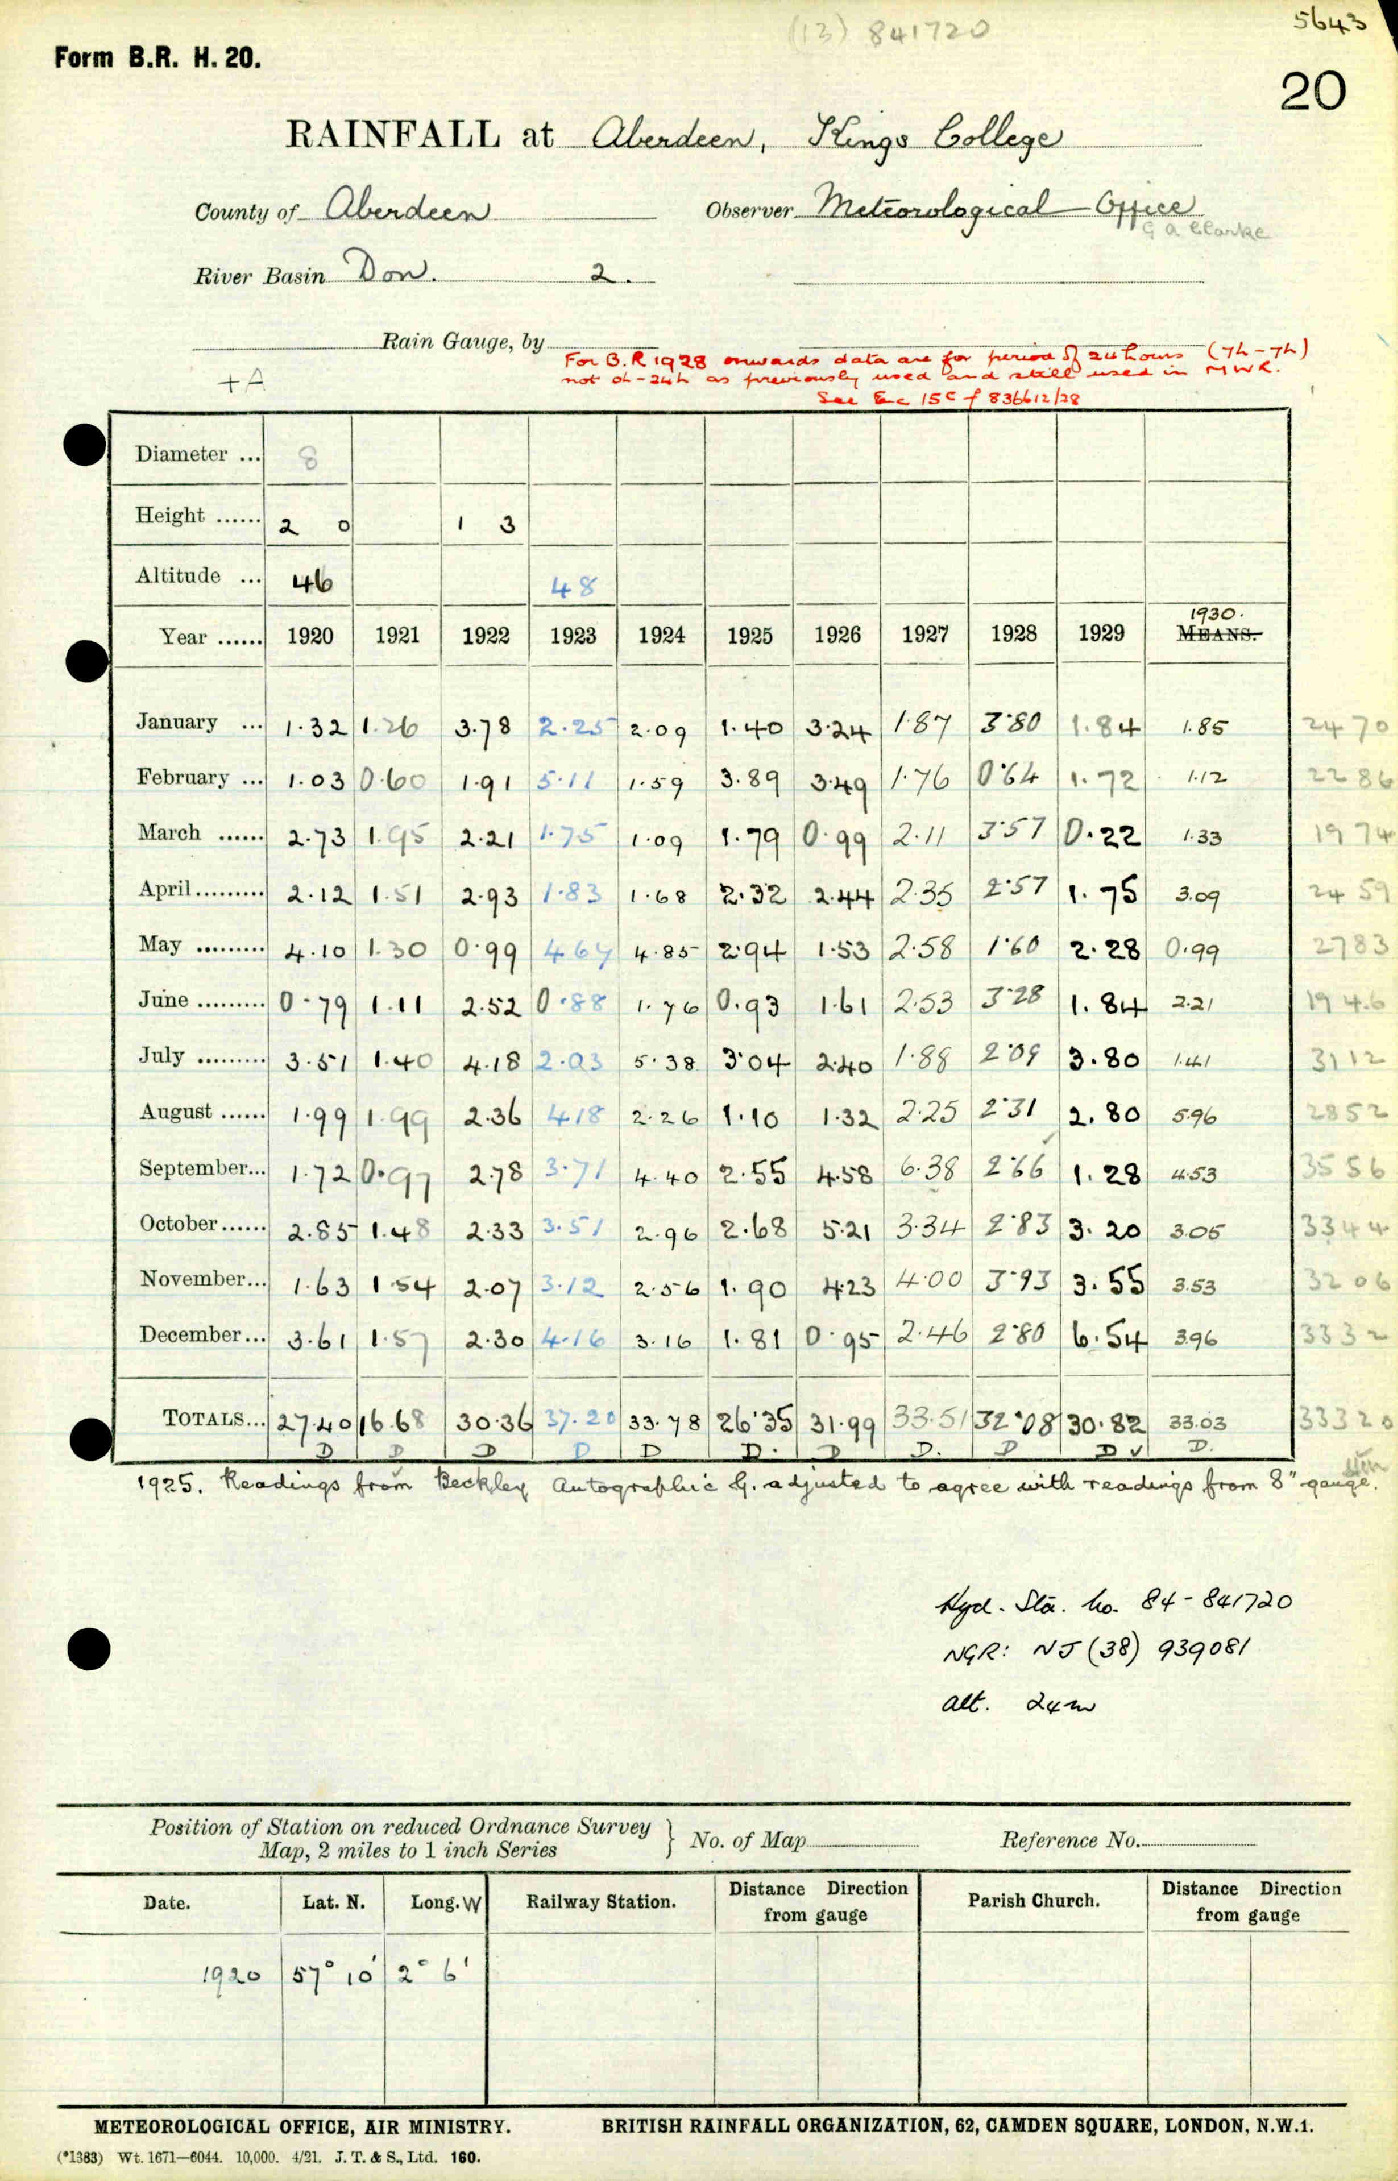 (13) 841720
5643
Form B.R. H. 20.
20
RAINFALL at Aberdeen, Kings College
County of Aberdeen Observer Meteorological Office
G A Clarke
River Basin Don. 2.
Rain Gauge, by
For B.R 1928 onwards data are for period of 24 hours (7h-7h)
not 0h-24h as previously used and still used in MWR.
+A
See Enc 15C of 836612/28
Diameter ... 8
Height ...... 2 0 1 3
Altitude ... 46 48
1930.
Year ...... 1920 1921 1922 1923 1924 1925 1926 1927 1928 1929 MEANS.
January ... 1.32 1.26 3.78 2.25 2.09 1.40 3.24 1.87 3.80 1.84 1.85 2470
February ... 1.03 0.60 1.91 5.11 1.59 3.89 3.49 1.76 0.64 1.72 1.12 2286
March ...... 2.73 1.95 2.21 1.75 1.09 1.79 0.99 2.11 3.57 0.22 1.33 1974
April......... 2.12 1.51 2.93 1.83 1.68 2.32 2.44 2.35 2.57 1.75 3.09 2459
May ......... 4.10 1.30 0.99 4.67 4.85 2.94 1.53 2.58 1.60 2.28 0.99 2783
June ......... 0.79 1.11 2.52 0.88 1.76 0.93 1.61 2.53 3.28 1.84 2.21 1946
July ......... 3.51 1.40 4.18 2.03 5.38 3.04 2.40 1.88 2.09 3.80 1.41 3112
August ...... 1.99 1.99 2.36 4.18 2.26 1.10 1.32 2.25 2.31 2.80 5.96 2852
September... 1.72 0.97 2.78 3.71 4.40 2.55 4.58 6.38 2.66 1.28 4.53 3556
October...... 2.85 1.48 2.33 3.51 2.96 2.68 5.21 3.34 2.83 3.20 3.05 3344
November... 1.63 1.54 2.07 3.12 2.56 1.90 4.23 4.00 3.93 3.55 3.53 3206
December... 3.61 1.57 2.30 4.16 3.16 1.81 0.95 2.46 2.80 6.54 3.96 3332
TOTALS... 27.40 16.68 30.36 37.20 33.78 26.35 31.99 33.51 32.08 30.82 33.03 33320
D D D D D D. D D. D D ✓ D.
1925. Readings from Beckley Autographic G. adjusted to agree with readings from 8" gauge.
Hyd. Sta. No. 84-841720
NGR: NJ (38) 939081
alt. 24m
Position of Station on reduced Ordnance Survey
Map, 2 miles to 1 inch Series } No. of Map Reference No.
Date. Lat. N. Long. W Railway Station. Distance Direction from gauge Parish Church. Distance Direction from gauge
1920 57° 10' 2° 6'
METEOROLOGICAL OFFICE, AIR MINISTRY. BRITISH RAINFALL ORGANIZATION, 62, CAMDEN SQUARE, LONDON, N.W.1.
(*1383) Wt. 1671—6044. 10,000. 4/21. J. T. & S., Ltd. 160.